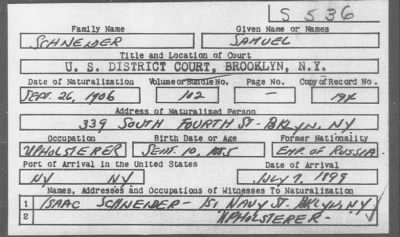 S 536
Family Name Given Name or Names
SCHNEIDER SAMUEL
Title and Location of Court
U. S. DISTRICT COURT, BROOKLYN, N.Y.
Date of Naturalization Volume or Bundle No. Page No. Copy of Record No.
SEPT. 26, 1906 102 — 194
Address of Naturalized Person
339 SOUTH FOURTH ST- BKLYN, NY
Occupation Birth Date or Age Former Nationality
UPHOLSTERER SEPT. 10, EMP. OF RUSSIA
Port of Arrival in the United States Date of Arrival
NY NY JULY 7, 1899
Names, Addresses and Occupations of Witnesses To Naturalization
1 ISAAC SCHNEIDER- 151 NAVY ST. BKLYN, NY
2 UPHOLSTERER-